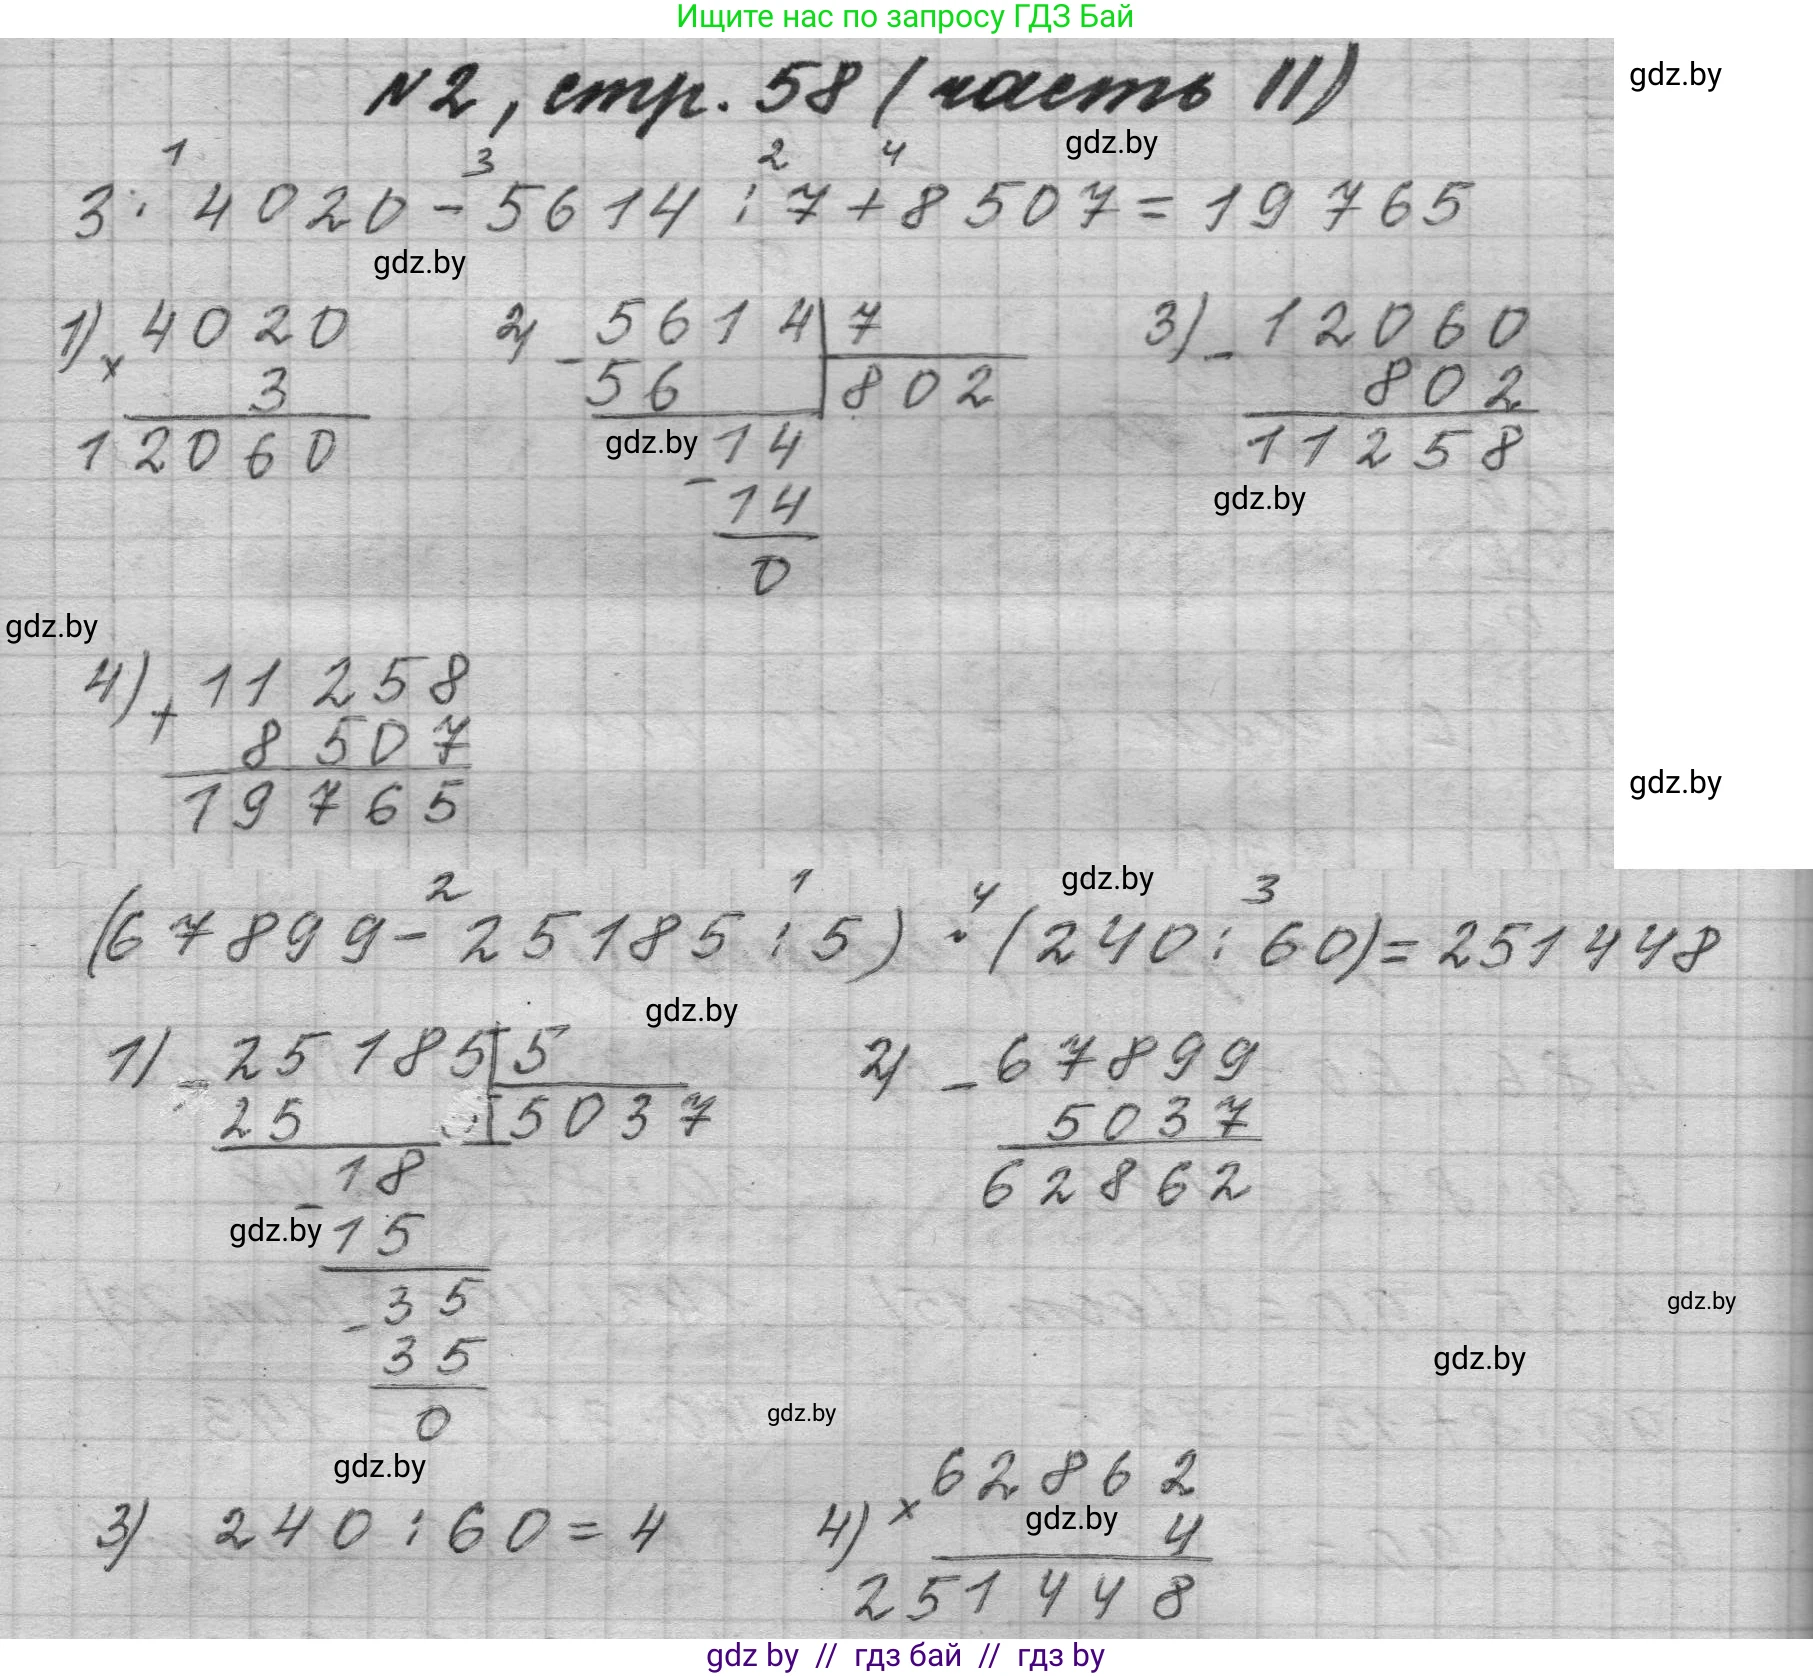 Ищите нас по запросу ГДЗ Бай
N2, стр. 58 (часть II)
gdz.by
gdz.by
1 3 2 4
3 · 4020 - 5614 : 7 + 8507 = 19765
gdz.by
1) 4020 2) 5614 7 3) 12060
× 3 - 56 802 - 802
12060 gdz.by 14 11258
- 14 gdz.by
0
gdz.by
4) + 11258
8507
19765
gdz.by
2 1 4 gdz.by 3
(67899 - 25185 : 5) · (240 : 60) = 251448
gdz.by
1) - 25185 5 2) - 67899
25 5037 5037
18 62862
gdz.by - 15
- 35 gdz.by
35 gdz.by
0 gdz.by
gdz.by 62862
3) 240 : 60 = 4 4) × gdz.by 4
251448
gdz by // гдз бай // гдз by